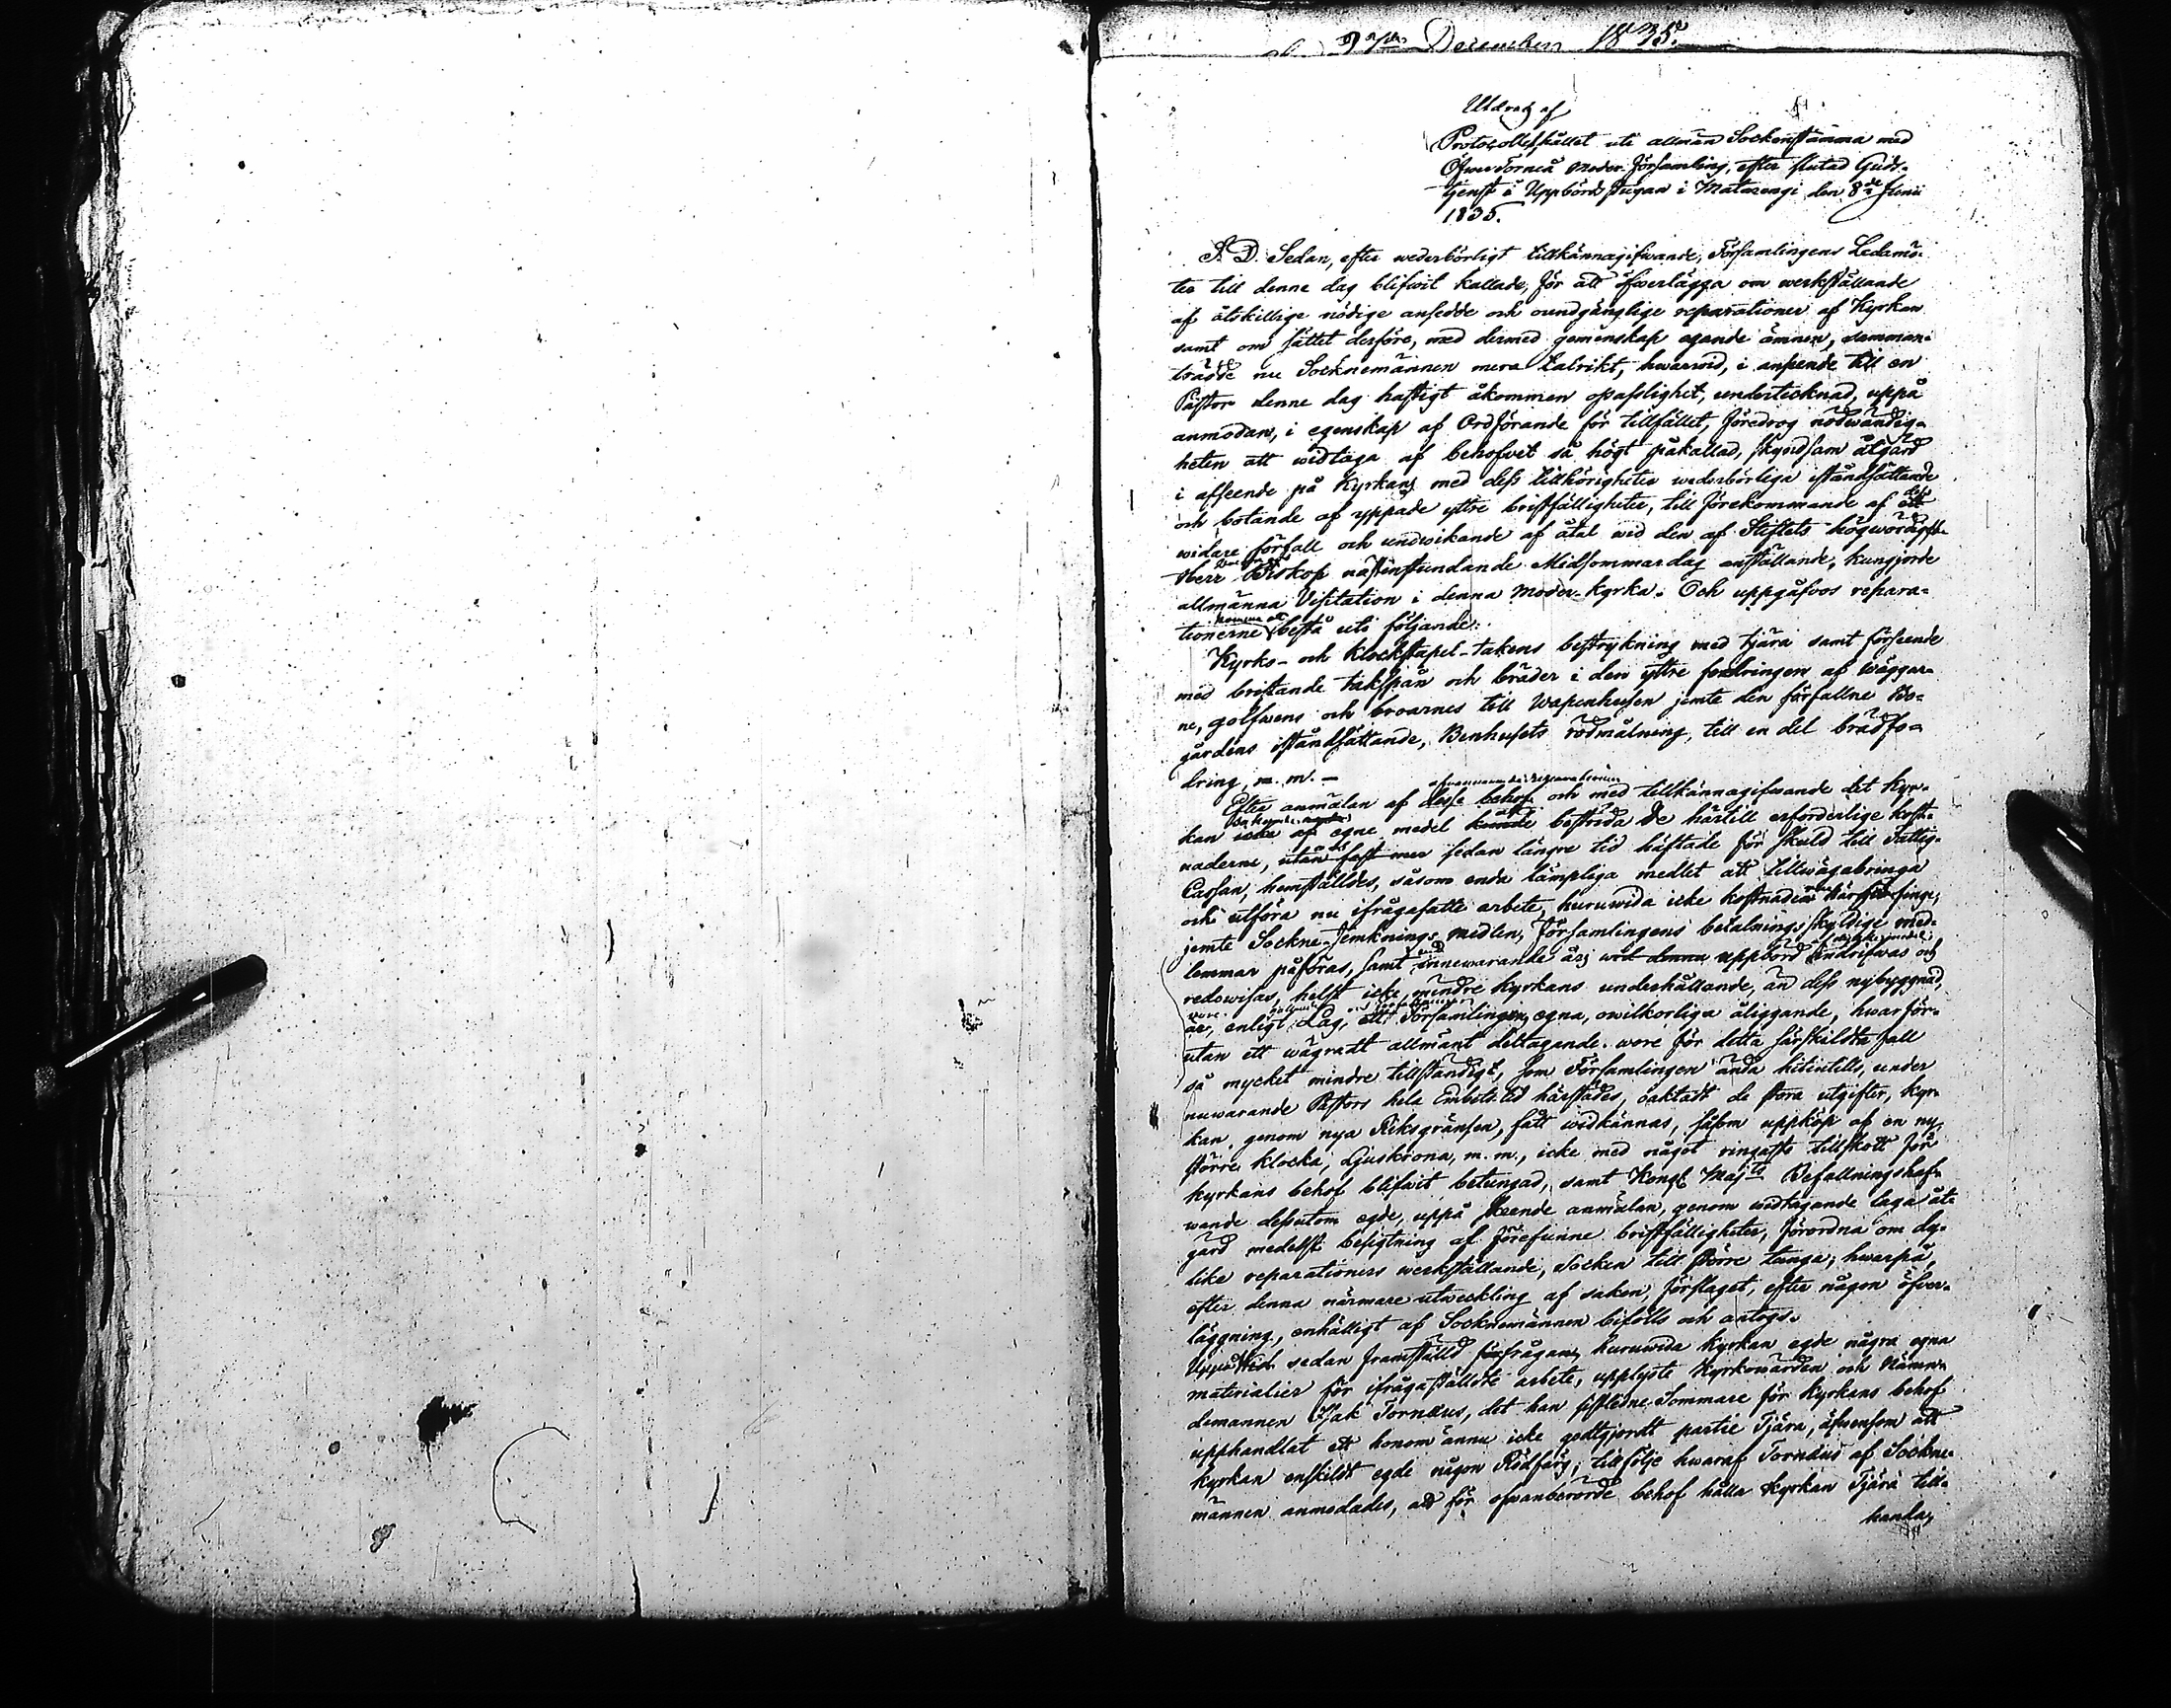 December 1835.
Utdrag af
Protocollet, hållet uti allmän Sockenstämma med
Öfwer Torneå Moder Församling, efter slutad Guds-
tjenst i Uppbörds stugan i Matarengi den 8de Junii
1835.
S. D. Sedan, efter wederbörligt tillkännagifwande, Församlingens Ledamö-
ter till denne dag blifwit kallade, för att öfwerlägga om werkställande
af åtskillige nödige ansedde och oundgänglige reparationer af Kyrkan
samt om sättet derföre, med dermed gemenskap egande ämnen, samman-
trädde nu Socknemännen mera talrikt, hwarwid, i anseende till en
Pastor denne dag hastigt åkommen opasslighet, undertecknad, uppå
anmodan, i egenskap af Ordförande för tillfället, föredrog nödwändig-
heten att widtaga af behofwet så högt påkallad, skyndsam åtgärd
i afseende på Kyrkans med dess tillhörigheter wederbörliga iståndsättande
och botande af yppade yttre bristfälligheter, till förekommande af dess
widare förfall och undwikande af åtal wid den af Stiftets högwördigste
Herr Biskop nästinstundande Midsommardag anställande, kungjorde
allmänna Visitation i denna Moder-kyrka. Och uppgåfwos repara-
tionerne komma att bestå uti följande:
Kyrko- och Klockstapel-takens bestrykning med tjära samt förseende
med bristande takspån och bräder i den yttre fordringen af wäggar-
ne, golfwens och broarnes till Wapenhusen jemte den förfallne
gårdens iståndsättande, Benhusets rödmålning, till en del brädfo-
dring, m. m. –
Efter anmälan af desse behof och med tillkännagifwande det Kyr-
kan egne medel att bestrida de härtill erforderlige kost-
naderne, utan fast mer sedan längre tid häftade för skuld till Fattig-
Cassan, hemställdes, såsom enda lämpliga medlet att tillwägabringa
och utföra nu ifrågasatte arbete, huruwida icke kostnaden härför finge,
jemte Sockne-Jemknings-medlen, Församlingens betalnings skyldige med-
lemmar påföras, samt innewarande år wid denna uppbörd indrifwas och
redowisas, helst icke mindre kyrkans underhållande, än dess nybyggnad,
är, enligt Lag, ett Församlingen egna, owilkorliga åliggande, hwarför-
utan ett wägradt allmänt deltagande wore för detta särskildta fall
så mycket mindre tillständigt, som Församlingen ända hitintills, under
nuwarande Pastors hela Embets tid härstädes, oaktadt de stora utgifter, kyr-
kan, genom nya Riksgränsen, fått widkännas, såsom uppköp af en ny
större klocka, Ljuskrona, m. m., icke med något ringaste tillskott för
kyrkans behof blifwit betungad, samt Kongl Maj:ts Befallningshaf-
wande dessutom egde, uppå skeende anmälan, genom widtagande laga åt-
gärd medelst besigtning af förefunne bristfälligheter, förordna om dy-
like reparationers werkställande, Socken till större tunga; hwarpå,
efter denna närmare utweckling af saken, förslaget, efter någon öfver-
läggning, enhälligt af Socknemännen bifölls och antogs.
Uppå sedan framställd förfrågan, huruwida kyrkan egde några egna
materialier för ifrågaställdte arbete, upplyste Kyrkowärden och Nämn-
demannen Isak Tornæus, det han sistledne Sommare för kyrkans behof
upphandlat ett honom ännu icke godtgjordt partie Tjära, äfwensom att
kyrkan enskildt egde någon Rödfärg; till följe hwaraf Tornæus af Sockne-
männen anmodades, att för ofwanberörde behof hålla kyrkan Tjära till-
handa,